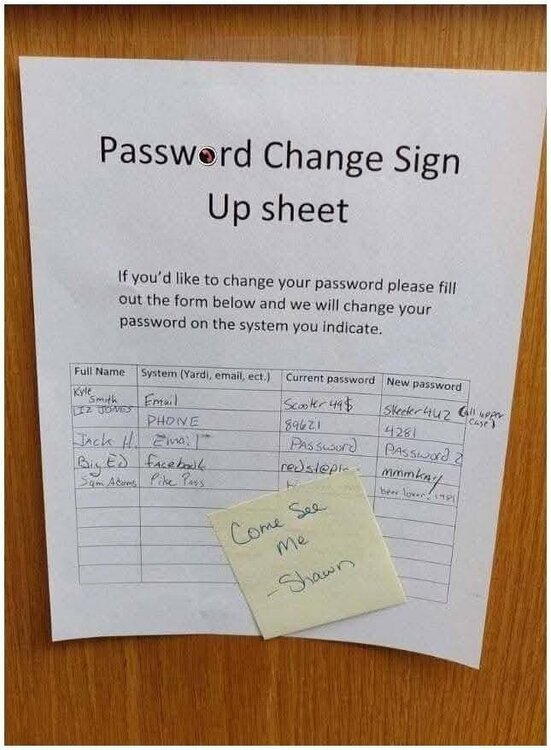 Password Change Sign
Up sheet
If you'd like to change your password please fill
out the form below and we will change your
password on the system you indicate.
Full Name System (Yardi, email, ect.) Current password New password
Kyle
Smith Email Scooter 49$ Skeeter 4U2 (all upper
case)
LIZ JONES PHONE 89621 4281
Jack H Email Password PASSword 2
Big Ed facebook mmmkay!
Sam Adams Pike Pass beer lover
Come See
Me
- Shawn